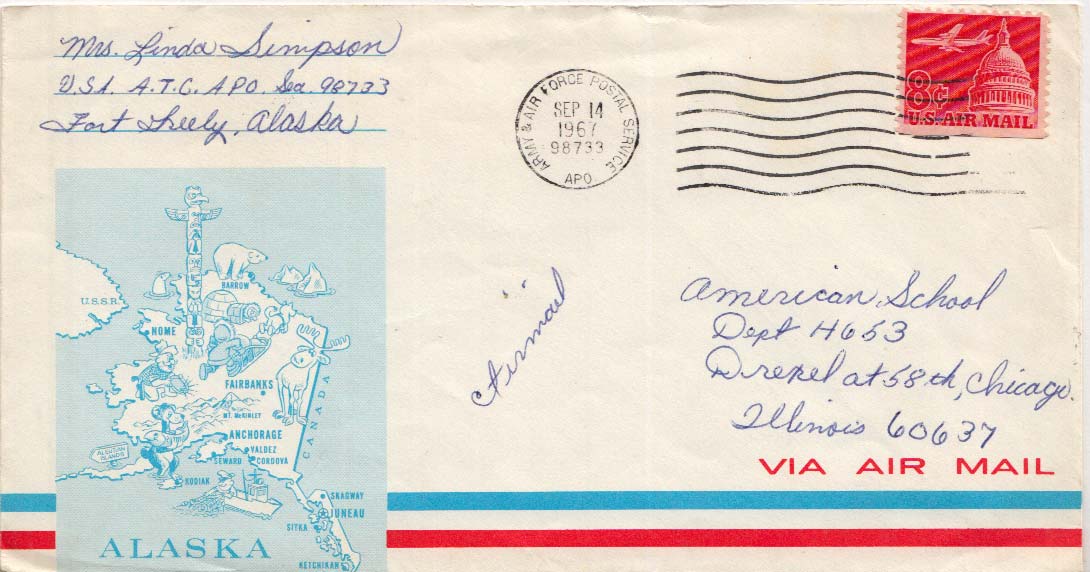 Mrs. Linda Simpson
U.S.A. A.T.C. APO. Sea. 98733
Fort Greely, Alaska
ARMY & AIR FORCE POSTAL SERVICE
SEP 14
1967
98733
APO
8¢
U.S. AIR MAIL
Airmail
American School
Dept 4653
Drexel at 58th, Chicago.
Illinois 60637
VIA AIR MAIL
U.S.S.R.
BARROW
NOME
FAIRBANKS
MT. McKINLEY
CANADA
ANCHORAGE
VALDEZ
SEWARD CORDOVA
ALEUTIAN ISLANDS
KODIAK
SKAGWAY
JUNEAU
SITKA
KETCHIKAN
ALASKA